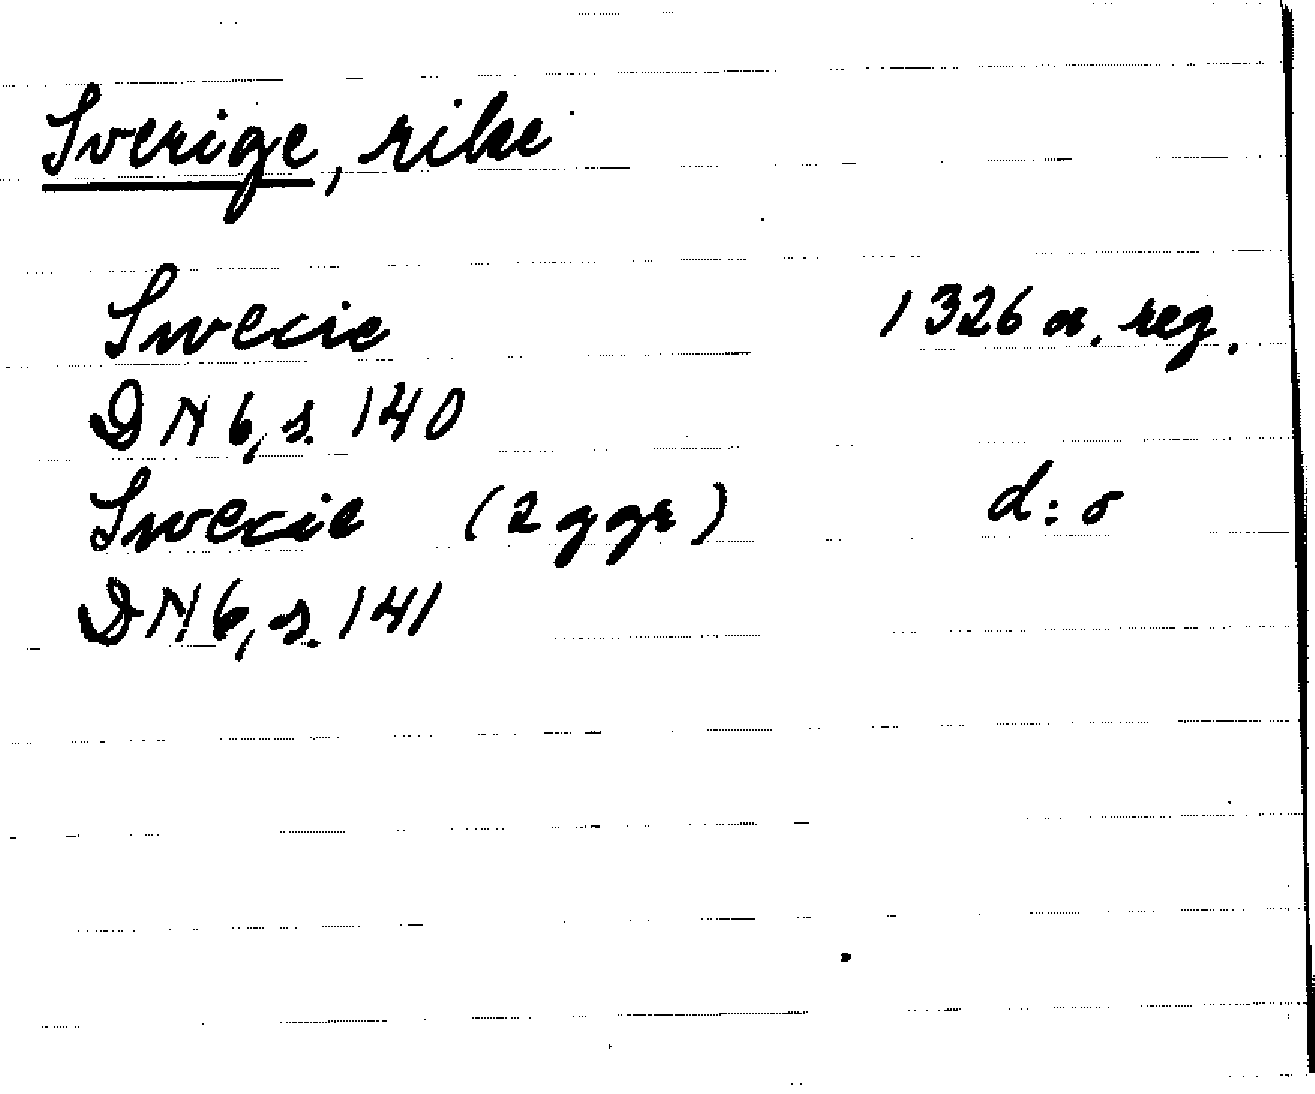 Sverige, rike
Swecie 1326 or. reg.
DN 6, s. 140
Swecie (2 ggr) d:o
DN 6, s. 141